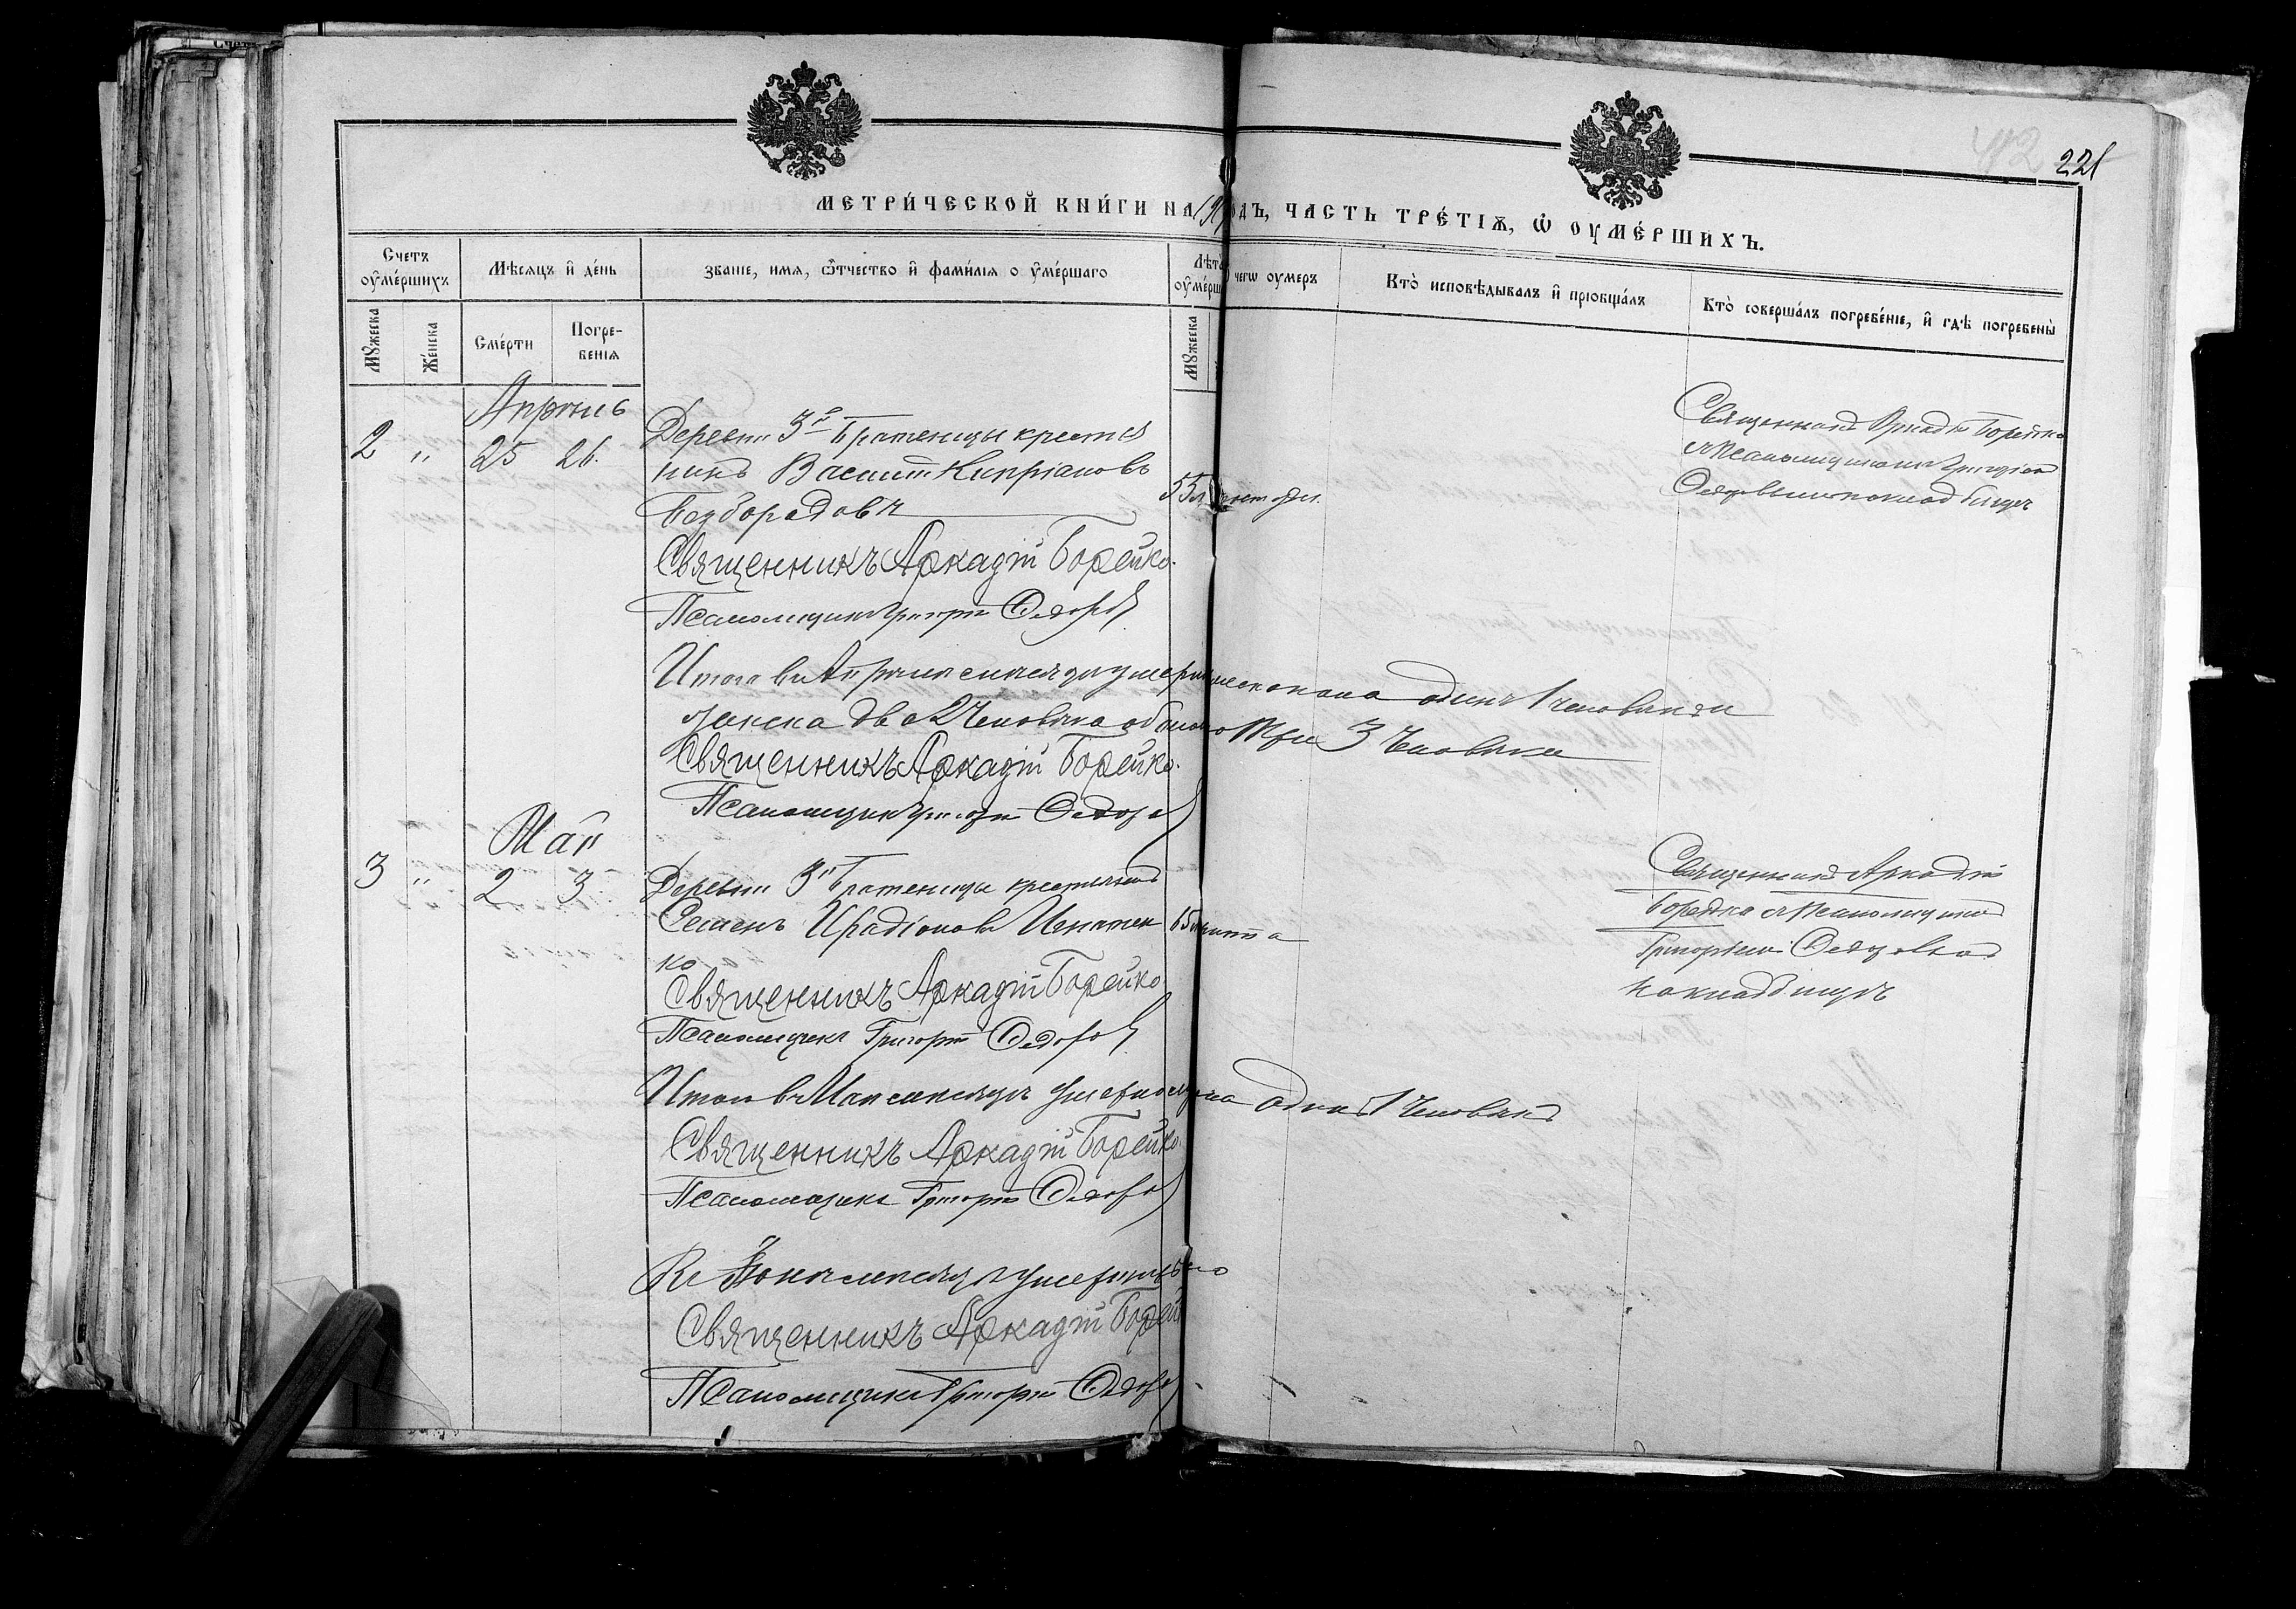 221
МЕТРИ́ЧЕСКОЙ КНИ́ГИ НА 19 ГОДЪ, ЧАСТЬ ТРЕ́ТІѦ, Ѽ ОУМЕ́РШИХЪ.
Счетъ оуме́ршихъ
Мѣсяцъ и де́нь
Званіе, имя, Ѿтчество и фами́лія о уме́ршаго
Лѣта оуме́рш
чегѡ оумеръ
Кто̀ исповѣдывалъ и пріобща́лъ
Кто̀ соверша́лъ погребе́ніе, и гдѣ погребены̀
Мужеска
Же́нска
Сме́рти
Погребенія
Мужеска
Апрѣль
2 " 25 26.
Деревни 3й Братеницы крестья
нинъ Василій Кипріановъ
Безбородовъ
55 л.
Священникъ Аркадій Борейко
Священникъ Аркадій Борейко.
Псаломщикъ Григорій Федоровъ
Итого въ Апрѣлѣ мѣсяцѣ умерш мескаго одинъ 1 человѣкъ и
женска два 2 человѣка обоего три 3 человѣка
Священникъ Аркадій Борейко.
Псаломщикъ Григорій Федоров
Май
3 " 2 3
Деревни 3й Братеницы крестьянинъ
Семенъ Ирадіоновъ Игнатен
ко
65
Священникъ Аркадій
Борейко съ псаломщикомъ
Григоріемъ Федоровымъ
на кладбищѣ
Священникъ Аркадій Борейко
Псаломщикъ Григорій Федоровъ
Итого въ Маѣ мѣсяцѣ умерло одинъ 1 человѣкъ
Священникъ Аркадій Борейко.
Псаломщикъ Григорій Федоровъ
Въ Іюнѣ мѣсяцѣ умершихъ
Священникъ Аркадій Борей
Псаломщикъ Григорій Федоров